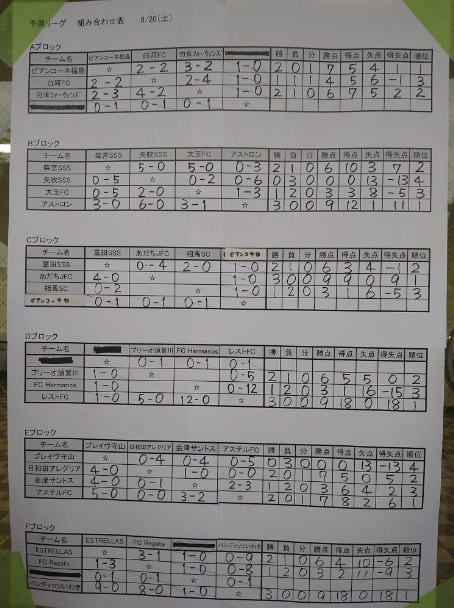 予選リーグ 組み合わせ表 8/20(土)
Aブロック
チーム名 ビアンコーネ福島 白河FC 勿来フォーウィンズ 勝 負 分 勝点 得点 失点 得失点 順位
ビアンコーネ福島 ☆ 2-2 3-2 1-0 2 0 1 7 5 4 1 1
白河FC 2-2 ☆ 2-4 1-0 1 1 1 4 5 6 -1 3
勿来フォーウィンズ 2-3 4-2 ☆ 1-0 2 1 0 6 7 5 2 2
0-1 0-1 0-1 ☆
Bブロック
チーム名 柴宮SSS 矢吹SSS 大玉FC アストロン 勝 負 分 勝点 得点 失点 得失点 順位
柴宮SSS ☆ 5-0 5-0 0-3 2 1 0 6 10 3 7 2
矢吹SSS 0-5 ☆ 0-2 0-6 0 3 0 0 0 13 -13 4
大玉FC 0-5 2-0 ☆ 1-3 1 2 0 3 3 8 -5 3
アストロン 3-0 6-0 3-1 ☆ 3 0 0 9 12 1 11 1
Cブロック
チーム名 富田SSS あだちJFC 相馬SC 勝 負 分 勝点 得点 失点 得失点 順位
富田SSS ☆ 0-4 2-0 1-0 2 1 0 6 3 4 -1 2
あだちJFC 4-0 ☆ 1-0 3 0 0 9 9 0 9 1
相馬SC 0-2 ☆ 1-0 1 2 0 3 1 6 -5 3
0-1 0-1 0-1 ☆
Dブロック
チーム名 ブリーオ須賀川 FC Hermanos レストFC 勝 負 分 勝点 得点 失点 得失点 順位
☆ 0-1 0-1 0-1
ブリーオ須賀川 1-0 ☆ 0-5 2 1 0 6 5 5 0 2
FC Hermanos 1-0 ☆ 0-12 1 2 0 3 1 16 -15 3
レストFC 1-0 5-0 12-0 ☆ 3 0 0 9 18 0 18 1
Eブロック
チーム名 ブレイヴ守山 日和田アレグリア 会津サントス アステルFC 勝 負 分 勝点 得点 失点 得失点 順位
ブレイヴ守山 ☆ 0-4 0-4 0-5 0 3 0 0 0 13 -13 4
日和田アレグリア 4-0 ☆ 1-0 0-0 2 0 1 7 5 0 5 2
会津サントス 4-0 0-1 ☆ 2-3 1 2 0 3 6 4 2 3
アステルFC 5-0 0-0 3-2 ☆ 2 0 1 7 8 2 6 1
Fブロック
チーム名 ESTRELLAS FC Regate バンディッツいわき 勝 負 分 勝点 得点 失点 得失点 順位
ESTRELLAS ☆ 3-1 1-0 2 1 0 6 4 10 -6 2
FC Regate 1-3 ☆ 1-0 0-8 1 2 0 3 2 11 -9 3
0-1 0-1 ☆ 0-1
バンディッツいわき 9-0 8-0 1-0 ☆ 3 0 0 9 18 0 18 1